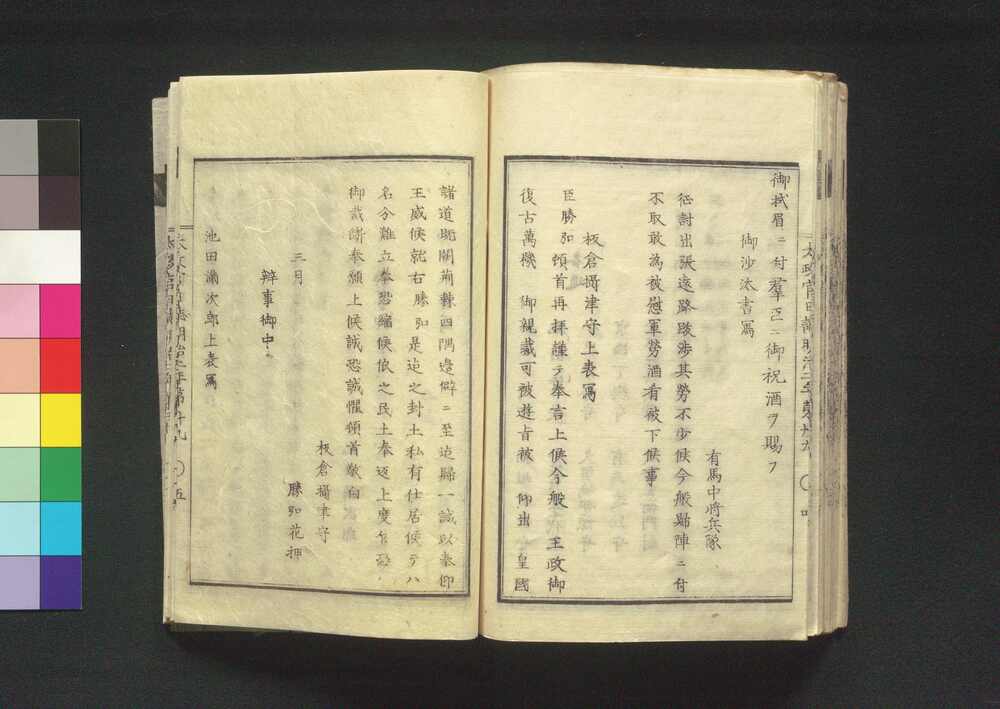 御拭眉ニ付羣臣ニ御祝酒ヲ賜フ
御沙汰書寫
有馬中將兵隊
征討出張遠路跋渉其勞不少候今般歸陣ニ付
不取敢為被慰軍勞酒肴被下候事
板倉攝津守上表寫
臣勝弘頓首再拝謹テ奉言上候今般 王政御
復古萬機 御親裁可被遊旨被 仰出 皇國
諸道既開荊棘四隅邊僻ニ至迄歸一誠以奉仰
王威候就右勝弘是迄之封土私有仕居候テハ
名分難立奉恐縮候依之民土奉返上度乍恐
御裁許奉願上候誠恐誠懼頓首敬白
板倉攝津守
勝弘花押
三月
辨事御中
池田満次郎上表寫
太政官日誌明治二年第廿九 〇 四
〇 五